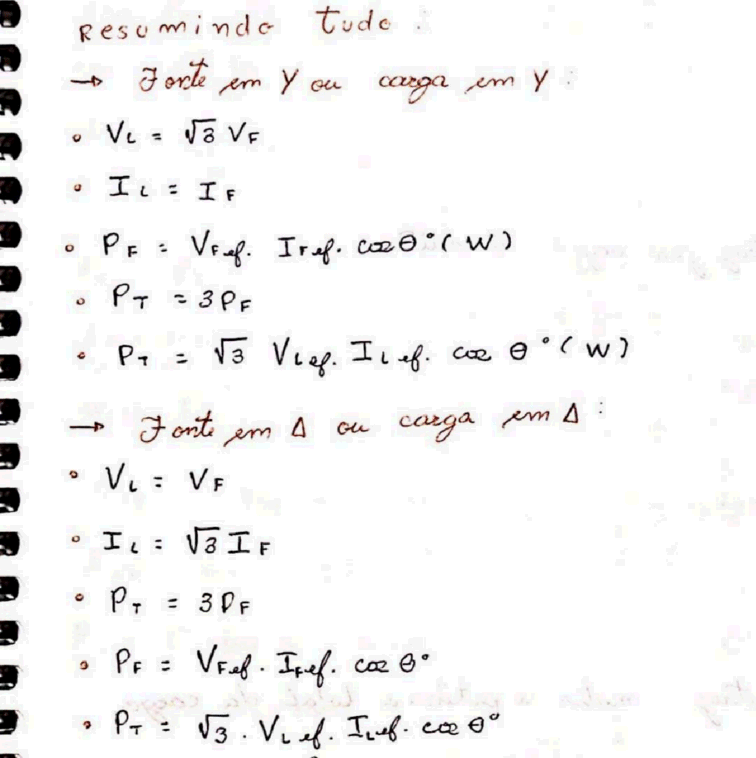 Resumindo tudo:
→ Fonte em Y ou carga em Y:
• VL = √3 VF
• IL = IF
• PF = VFef. IFef. cos θ° (W)
• PT = 3PF
• PT = √3 VLef. ILef. cos θ° (W)
→ Fonte em Δ ou carga em Δ:
• VL = VF
• IL = √3 IF
• PT = 3PF
• PF = VFef. IFef. cos θ°
• PT = √3. VLef. ILef. cos θ°